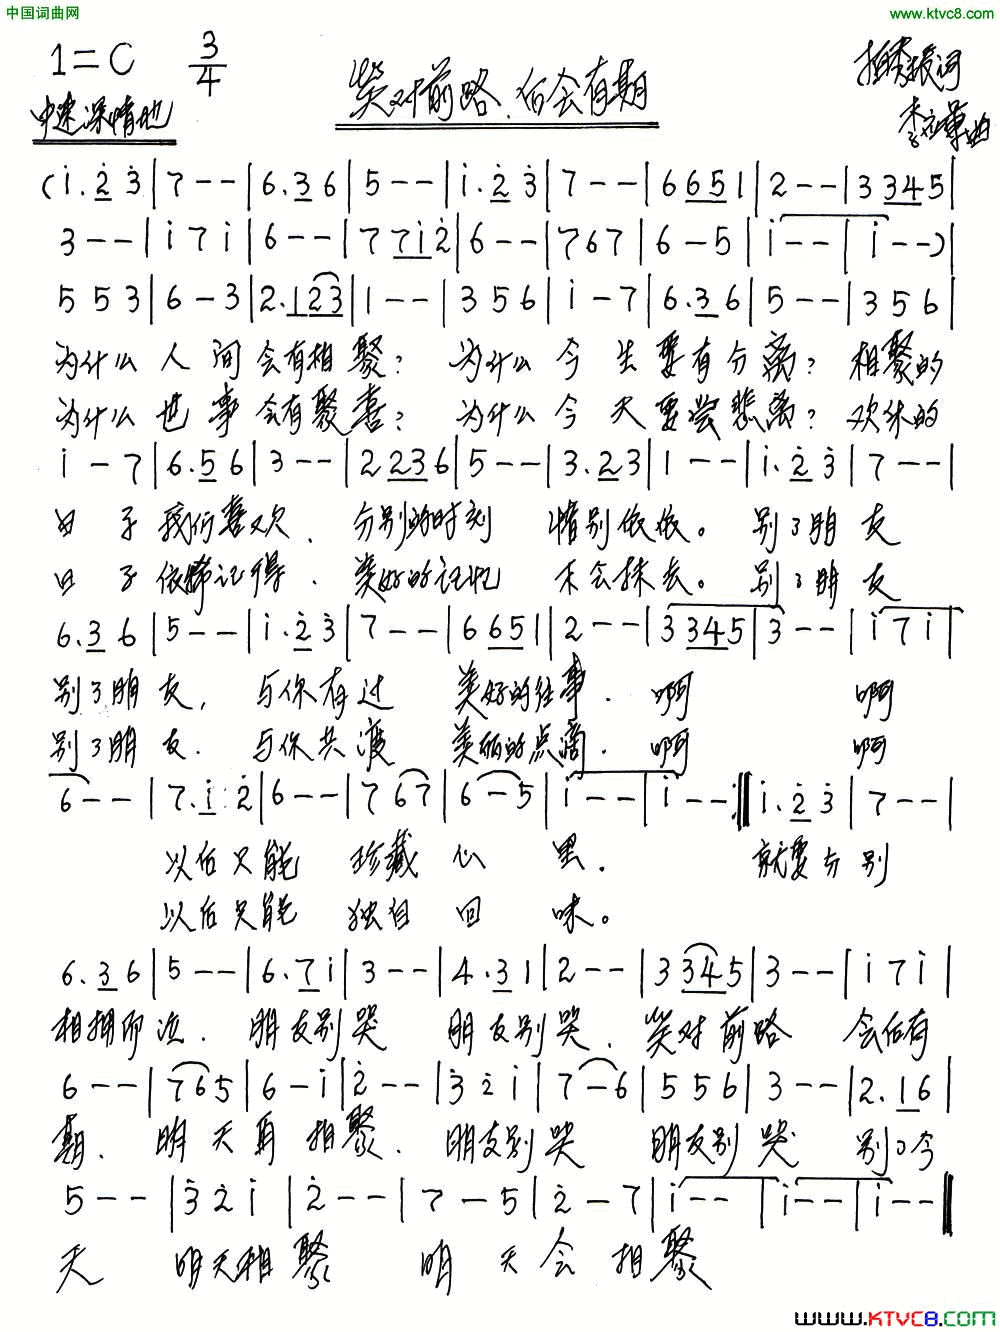 中国词曲网
www.ktvc8.com
1=C 3/4
笑对前路、后会有期
中速深情地
词
曲
(i.2̇ 3̇|7--|6.3 6|5--|i.2̇ 3̇|7--|6 6 5 1|2--|3 3 4 5|
3--|i 7 i|6--|7 7 i 2̇|6--|7 6 7|6-5|i--|i--)|
5 5 3|6-3|2.1 2 3|1--|3 5 6|i-7|6.3 6|5--|3 5 6|
为什么人间会有相聚? 为什么今生要有分离? 相聚的
为什么世事会有聚喜? 为什么今天要尝悲离? 欢乐的
i-7|6.5 6|3--|2 2 3 6|5--|3.2 3|1--|i.2̇ 3̇|7--|
日子我们喜欢、分别的时刻 惜别依依。 别了朋友
日子依稀记得、美好的记忆 不会抹去。 别了朋友
6.3 6|5--|i.2̇ 3̇|7--|6 6 5 1|2--|3 3 4 5|3--|i 7 i|
别了朋友, 与你有过 美好的往事. 啊 啊
别了朋友. 与你共渡 美丽的点滴. 啊 啊
6--|7.i 2̇|6--|7 6 7|6-5|i--|i--:‖i.2̇ 3̇|7--|
以后只能 珍藏心里. 就要分别
以后只能 独自回味。
6.3 6|5--|6.7 i|3--|4.3 1|2--|3 3 4 5|3--|i 7 i|
相拥而泣. 朋友别哭 朋友别哭. 笑对前路 会后有
6--|7 6 5|6-i|2̇--|3̇ 2̇ i|7-6|5 5 6|3--|2.1 6|
期. 明天再相聚. 朋友别哭 朋友别哭 别了今
5--|3̇ 2̇ i|2̇--|7-5|2̇-7|i--|i--|i--‖
天 明天相聚 明天会相聚
www.KTVC8.com